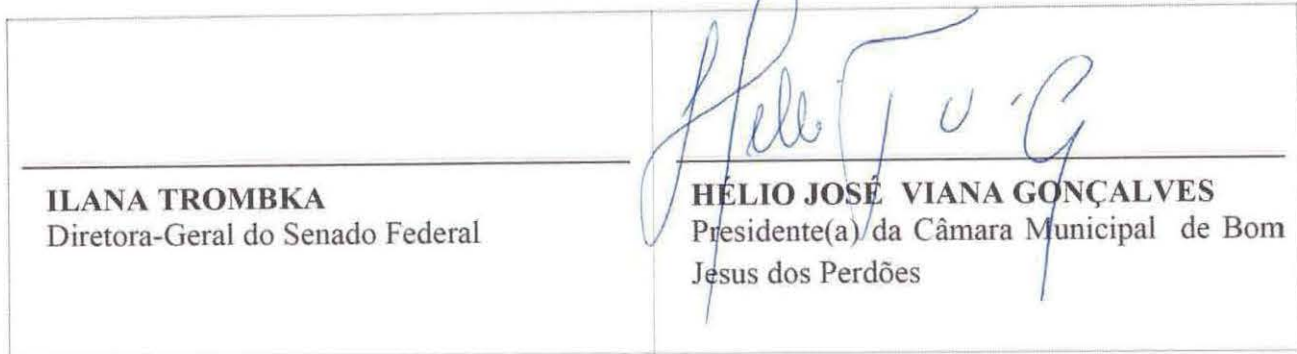 ILANA TROMBKA
Diretora-Geral do Senado Federal
HÉLIO JOSÉ VIANA GONÇALVES
Presidente(a) da Câmara Municipal de Bom
Jesus dos Perdões